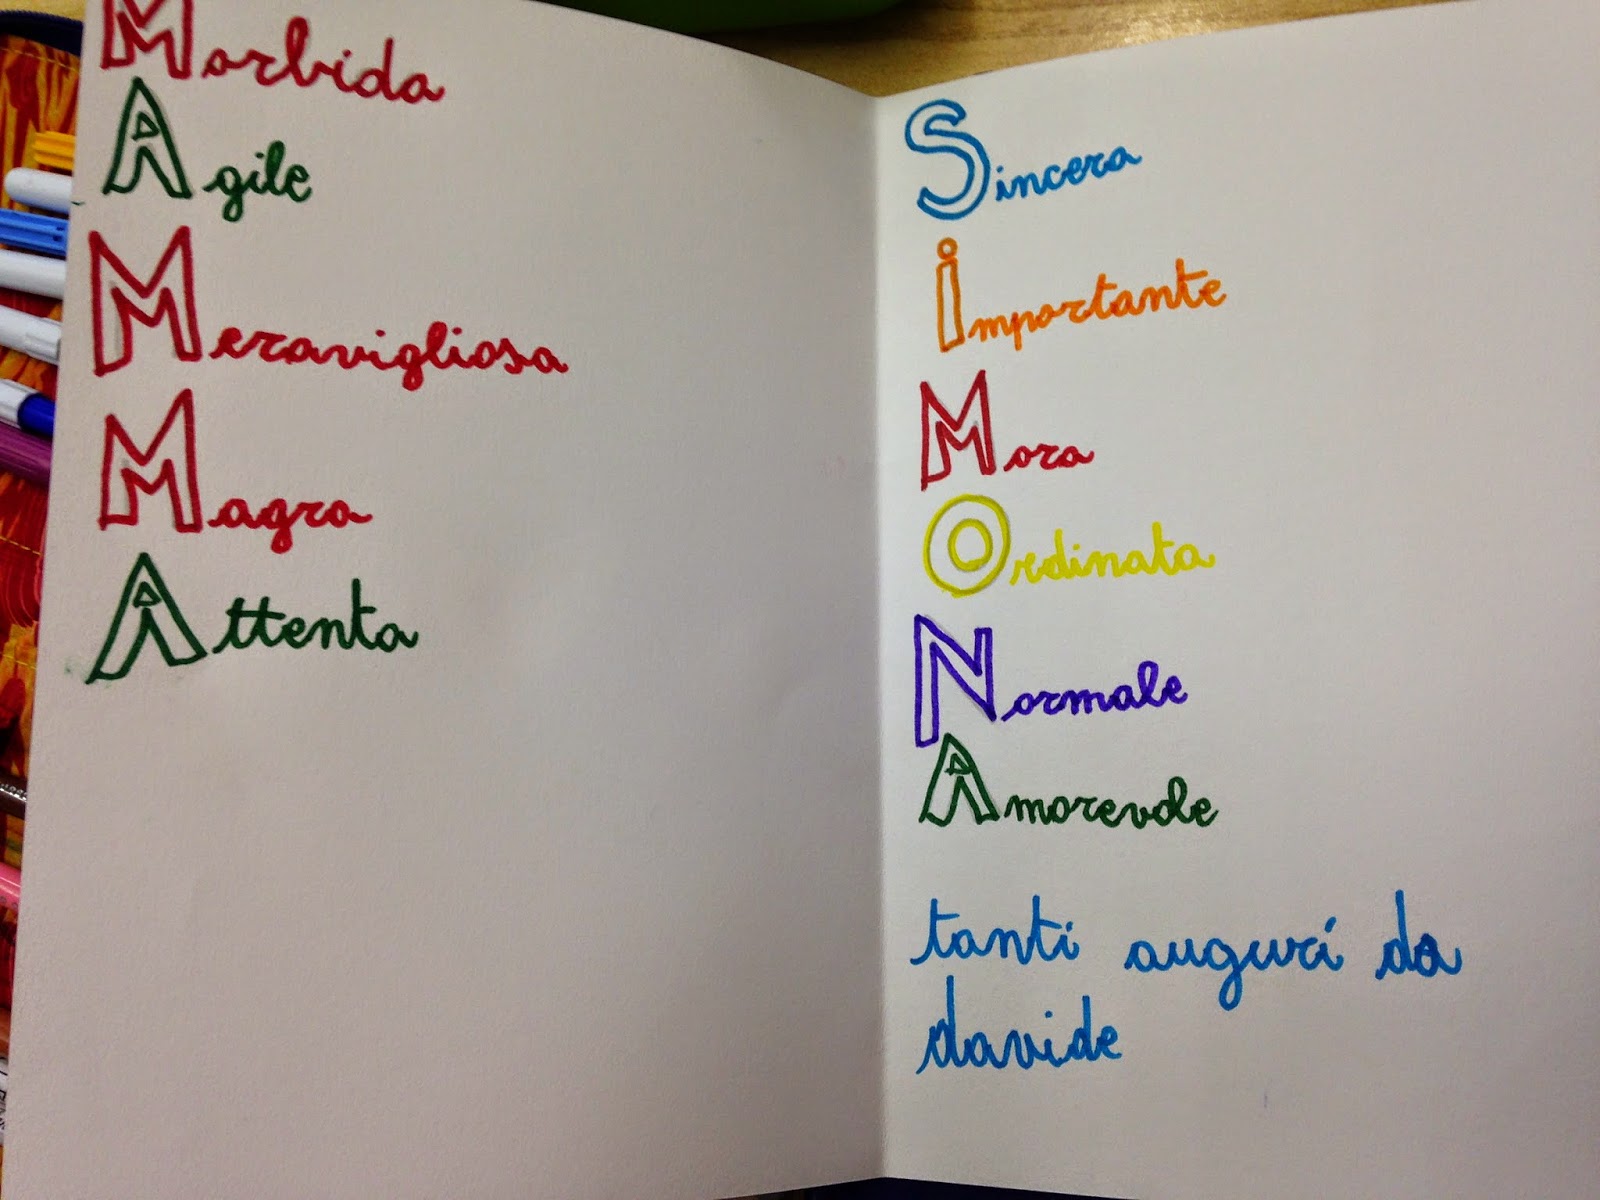 Morbida
Agile
Meravigliosa
Magra
Attenta
Sincera
Importante
Mora
Ordinata
Normale
Amorevole
tanti auguri da
davide